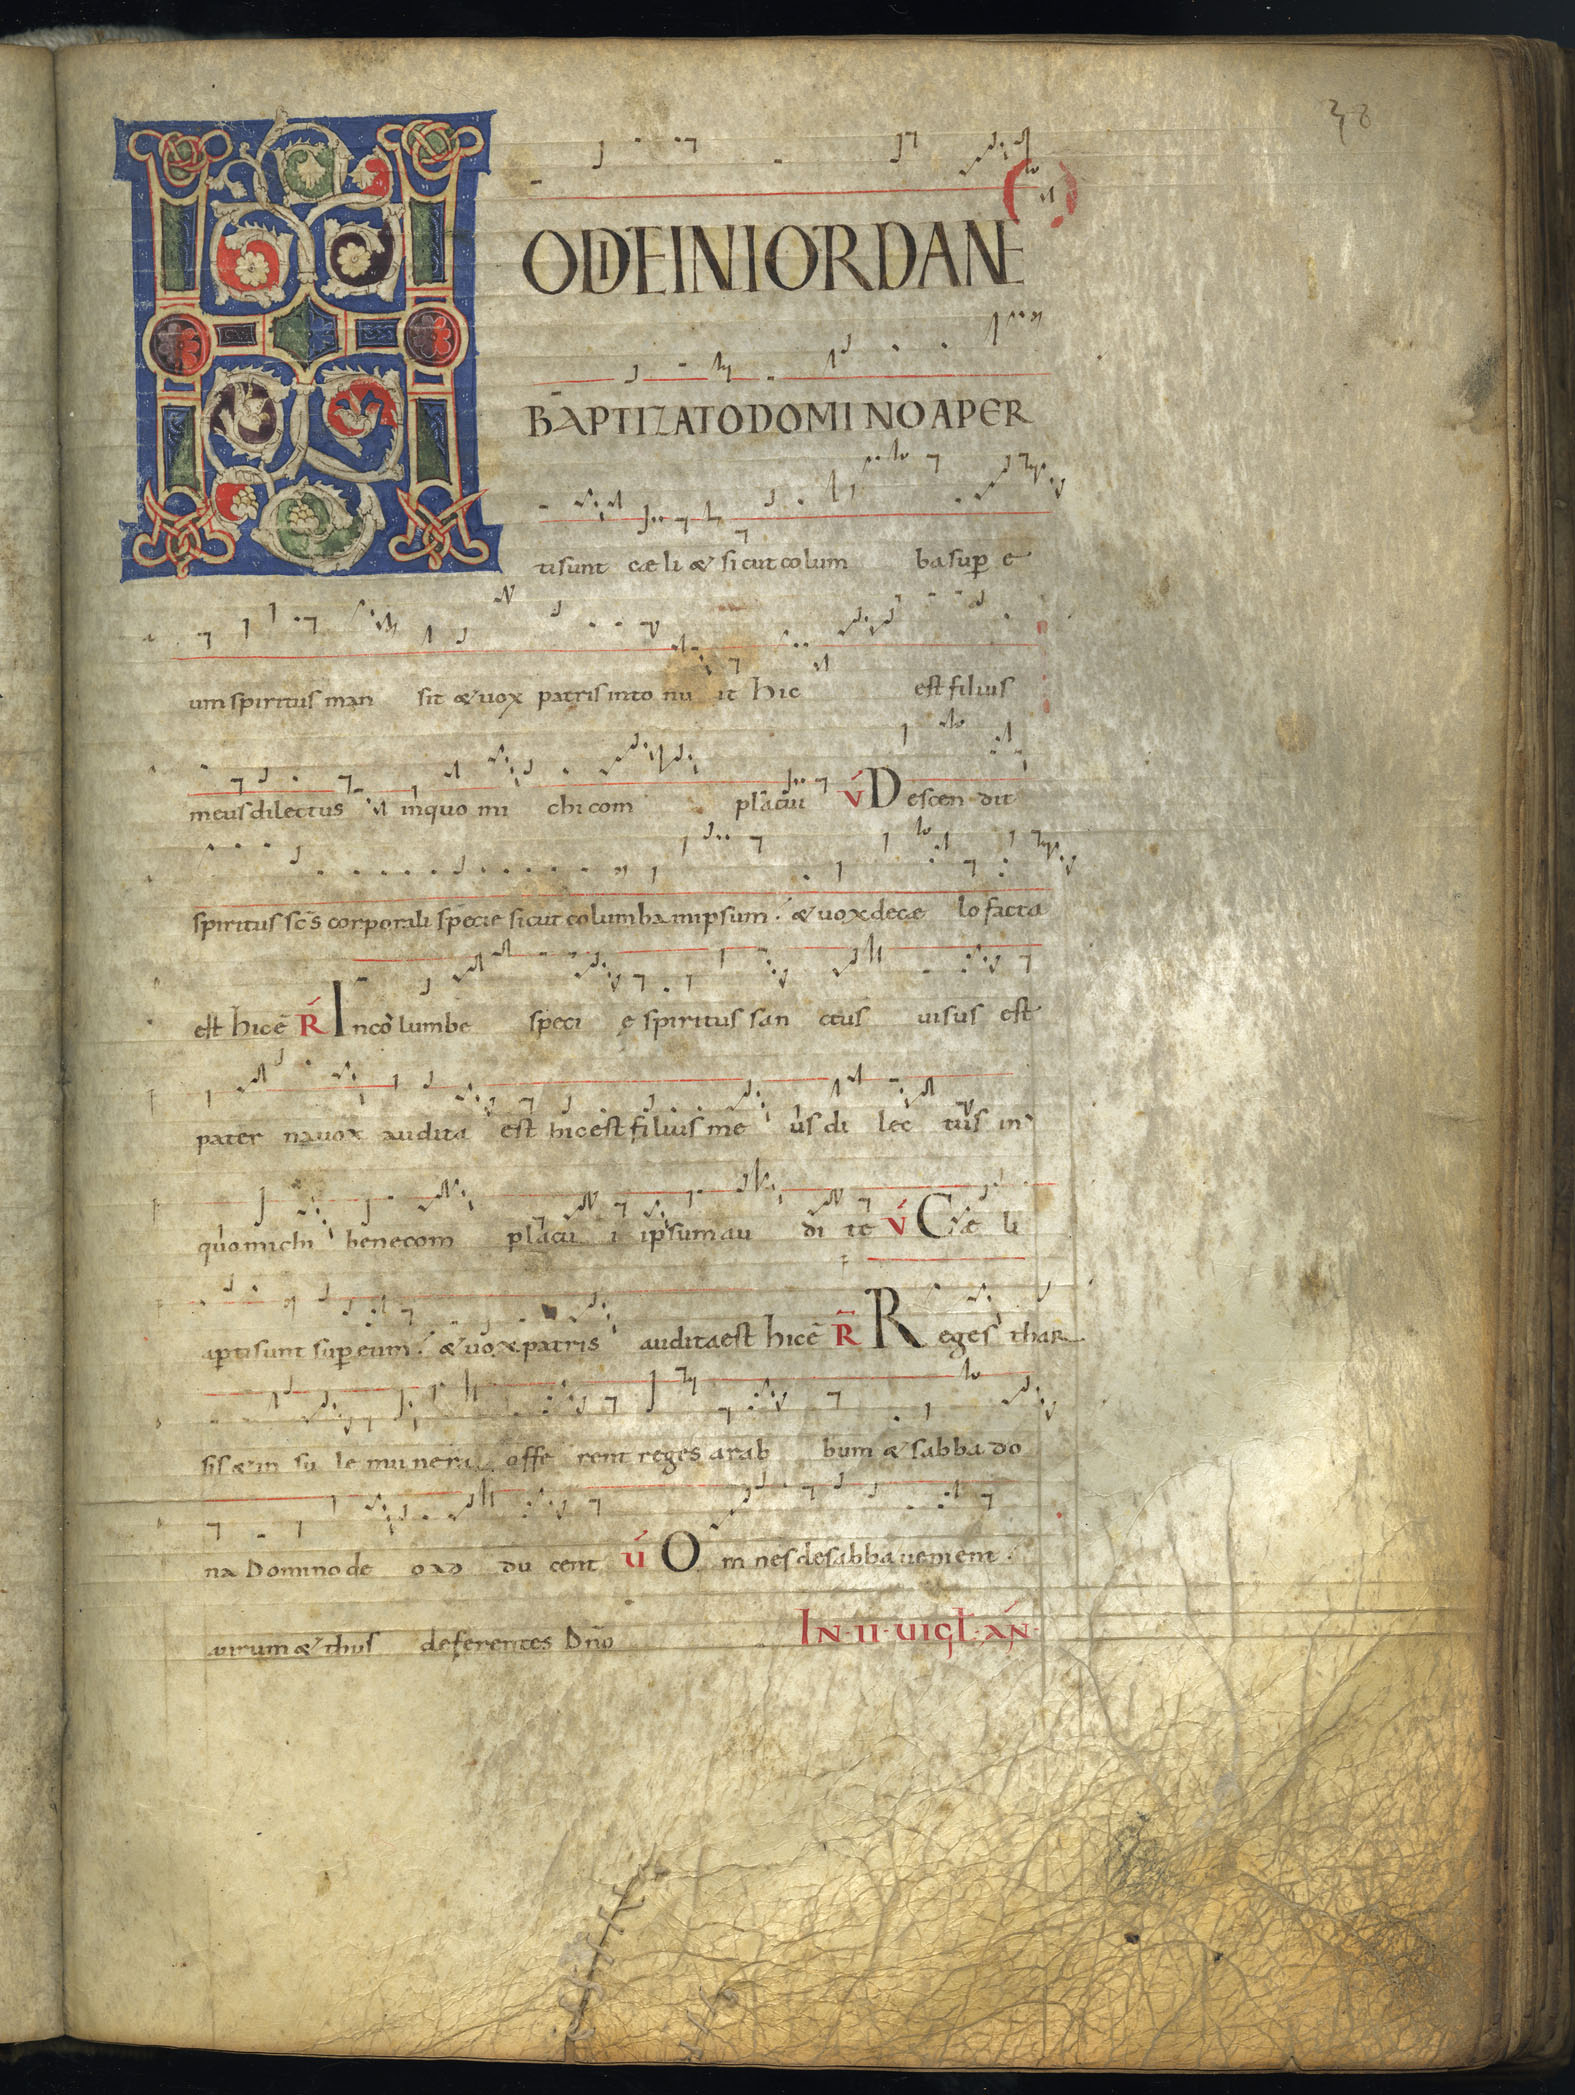 38
HODIE IN IORDANE
BAPTIZATO DOMINO APER
ti sunt cæli & sicut colum ba sup e
um spiritus man sit & uox patris into nu it hic est filius
meus dilectus in quo mi chi com placui V́ Descen dit
spiritus scs̄ corporali specie sicut columba in ipsum. & uox de cæ lo facta
est hic ē R̄ In columbe speci ę spiritus san ctus uisus est
pater na uox audita est hic est filius me us di lec tus in
quo michi bene com placui i ipsum au di te V́ Cæ li
apti sunt sup eum. & uox patris audita est hic ē R̄ Reges thar
sis & in su le munera offe rent reges arab bum & sabba do
na Domino deo ad du cent V́ Om nes de sabba uenient.
aurum & thus deferentes Dno̅
IN · II · UIGL̅ · AN̅ ·